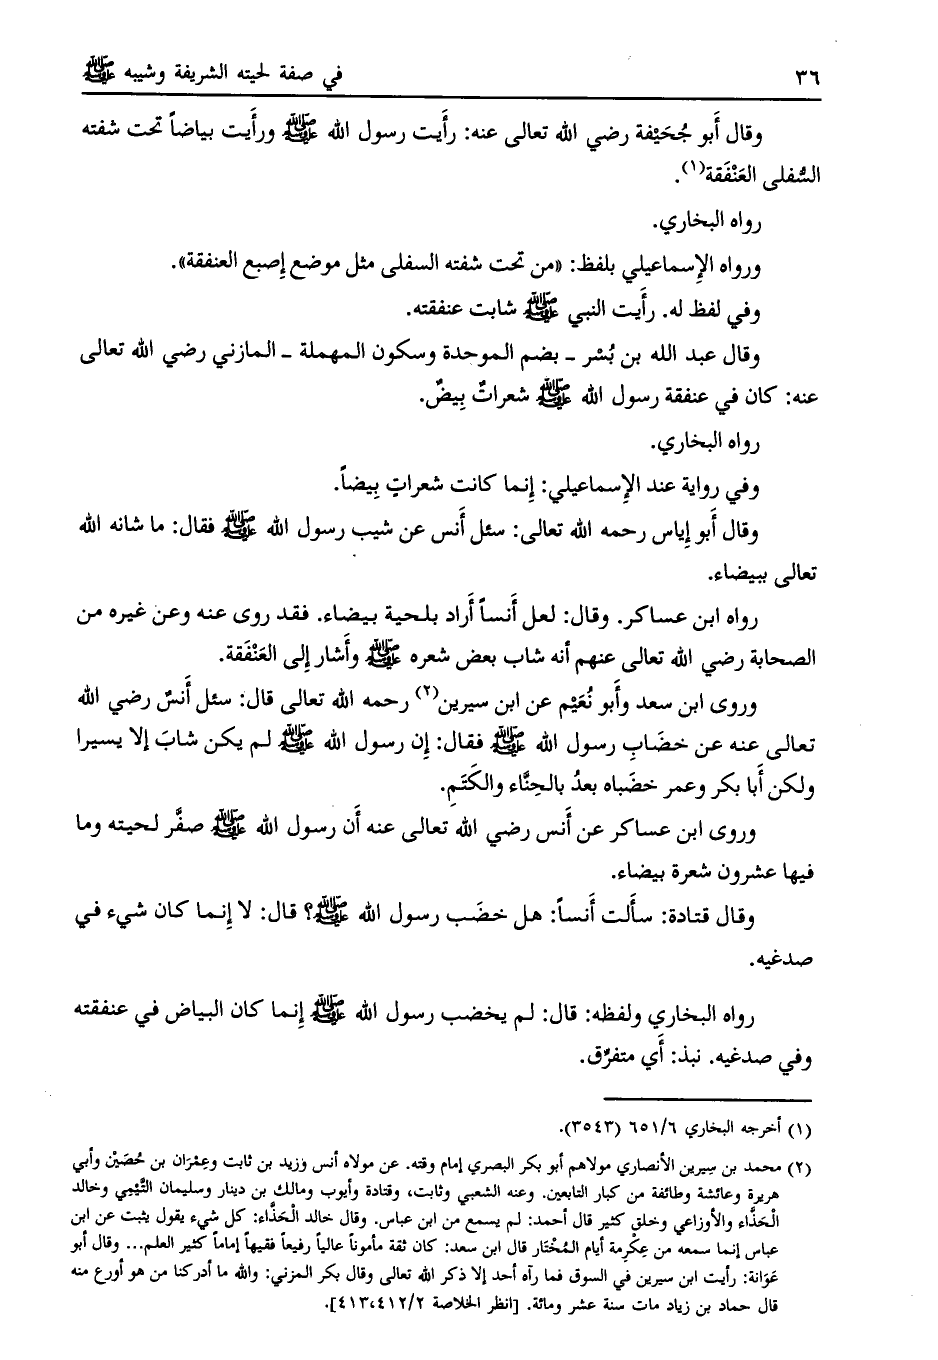 ٣٦
في صفة لحيته الشريفة وشيبه ﷺ
وقال أَبو جُحَيْفة رضي الله تعالى عنه: رأَيت رسول الله ﷺ ورأَيت بياضاً تحت شفته
السُّفلى العَنْفَقة(١).
رواه البخاري.
ورواه الإِسماعيلي بلفظ: «من تحت شفته السفلى مثل موضع إِصبع العنفقة».
وفي لفظ له. رأَيت النبي ﷺ شابت عنفقته.
وقال عبد الله بن بُسْر ـ بضم الموحدة وسكون المهملة ـ المازني رضي الله تعالى
عنه: كان في عنفقة رسول الله ﷺ شعراتٌ بِيضٌ.
رواه البخاري.
وفي رواية عند الإِسماعيلي: إِنما كانت شعراتٍ بِيضاً.
وقال أَبو إِياس رحمه الله تعالى: سئل أَنس عن شيب رسول الله ﷺ فقال: ما شانه الله
تعالى ببيضاء.
رواه ابن عساكر. وقال: لعل أَنساً أَراد بلحية بيضاء. فقد روى عنه وعن غيره من
الصحابة رضي الله تعالى عنهم أنه شاب بعض شعره ﷺ وأَشار إِلى العَنْفَقة.
وروى ابن سعد وأَبو نُعَيْم عن ابن سيرين(٢) رحمه الله تعالى قال: سئل أَنسٌ رضي الله
تعالى عنه عن خضَابِ رسول الله ﷺ فقال: إِن رسول الله ﷺ لم يكن شابَ إلا يسيرا
ولكن أَبا بكر وعمر خضَباه بعدُ بالحِنَّاء والكَتَمِ.
وروى ابن عساكر عن أَنس رضي الله تعالى عنه أَن رسول الله ﷺ صفَّر لحيته وما
فيها عشرون شعرة بيضاء.
وقال قتادة: سأَلت أَنساً: هل خضَب رسول الله ﷺ؟ قال: لا إِنما كان شيء في
صدغيه.
رواه البخاري ولفظه: قال: لم يخضب رسول الله ﷺ إِنما كان البياض في عنفقته
وفي صدغيه. نبذ: أَي متفرّق.
(١) أخرجه البخاري ٦/ ٦٥١ (٣٥٤٣).
(٢) محمد بن سِيرين الأنصاري مولاهم أبو بكر البصري إمام وقته. عن مولاه أنس وزيد بن ثابت وعِمْرَان بن حُصَيْن وأبي
هريرة وعائشة وطائفة من كبار التابعين. وعنه الشعبي وثابت، وقتادة وأيوب ومالك بن دينار وسليمان التَّيْمِي وخالد
الْحَذَّاء والأوزاعي وخلق كثير قال أحمد: لم يسمع من ابن عباس. وقال خالد الْحَذَّاء: كل شيء يقول يثبت عن ابن
عباس إنما سمعه من عِكْرِمة أيام المُخْتَار قال ابن سعد: كان ثقة مأموناً عالياً رفيعاً فقيهاً إماماً كثير العلم... وقال أبو
عَوَانة: رأيت ابن سيرين في السوق فما رآه أحد إلا ذكر الله تعالى وقال بكر المزني: والله ما أدركنا من هو أورع منه
قال حماد بن زياد مات سنة عشر ومائة. [انظر الخلاصة ٢/ ٤١٢،٤١٣].